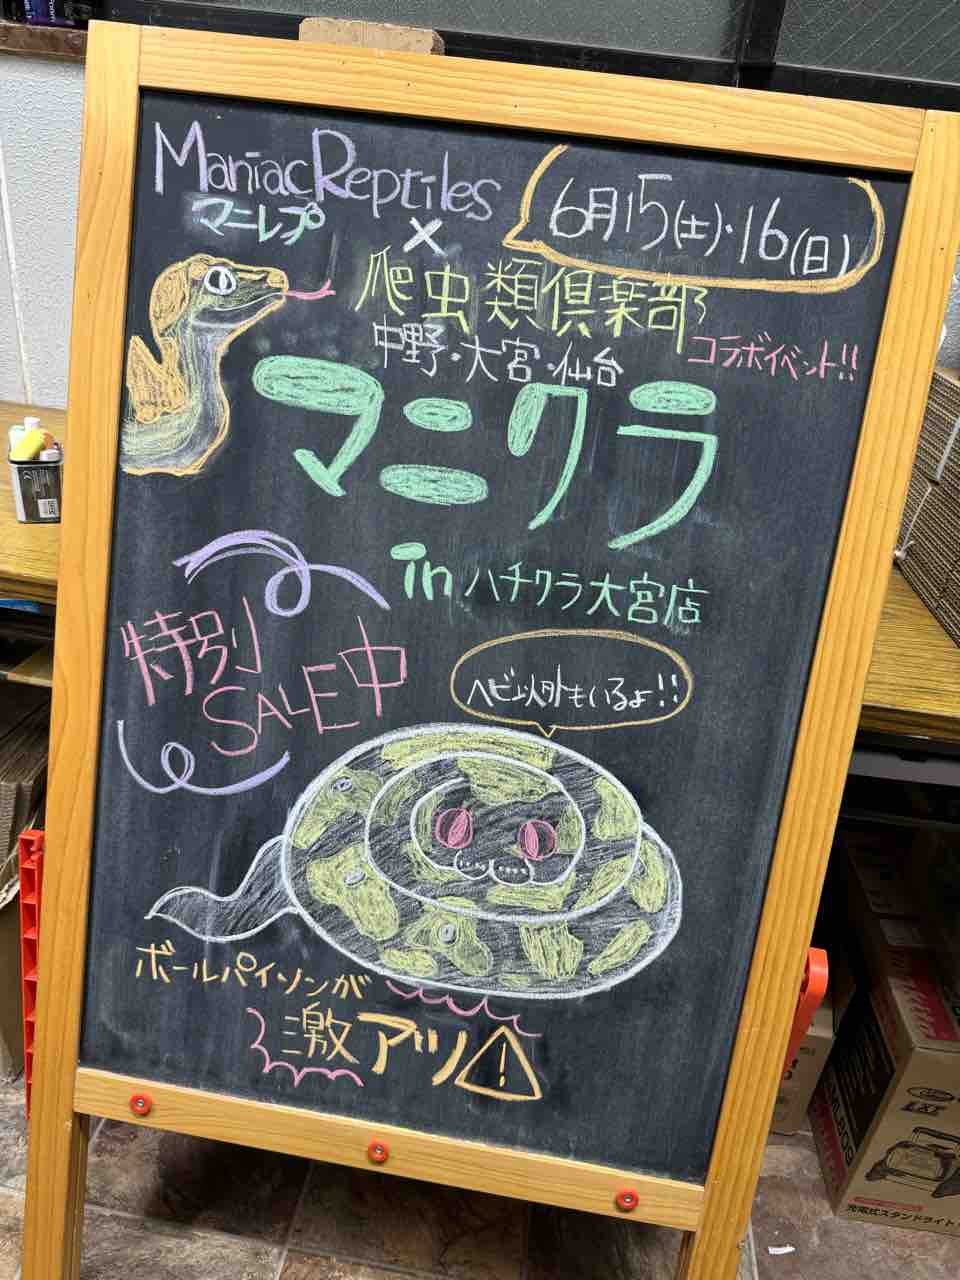 Maniac Reptiles
マニレプ
×
6月15(土)・16(日)
爬虫類倶楽部
中野・大宮・仙台
コラボイベント!!
マニクラ
in ハチクラ大宮店
特別
SALE中
ヘビ以外もいるよ!!
ボールパイソンが
激アツ
!
充電式スタンドライト